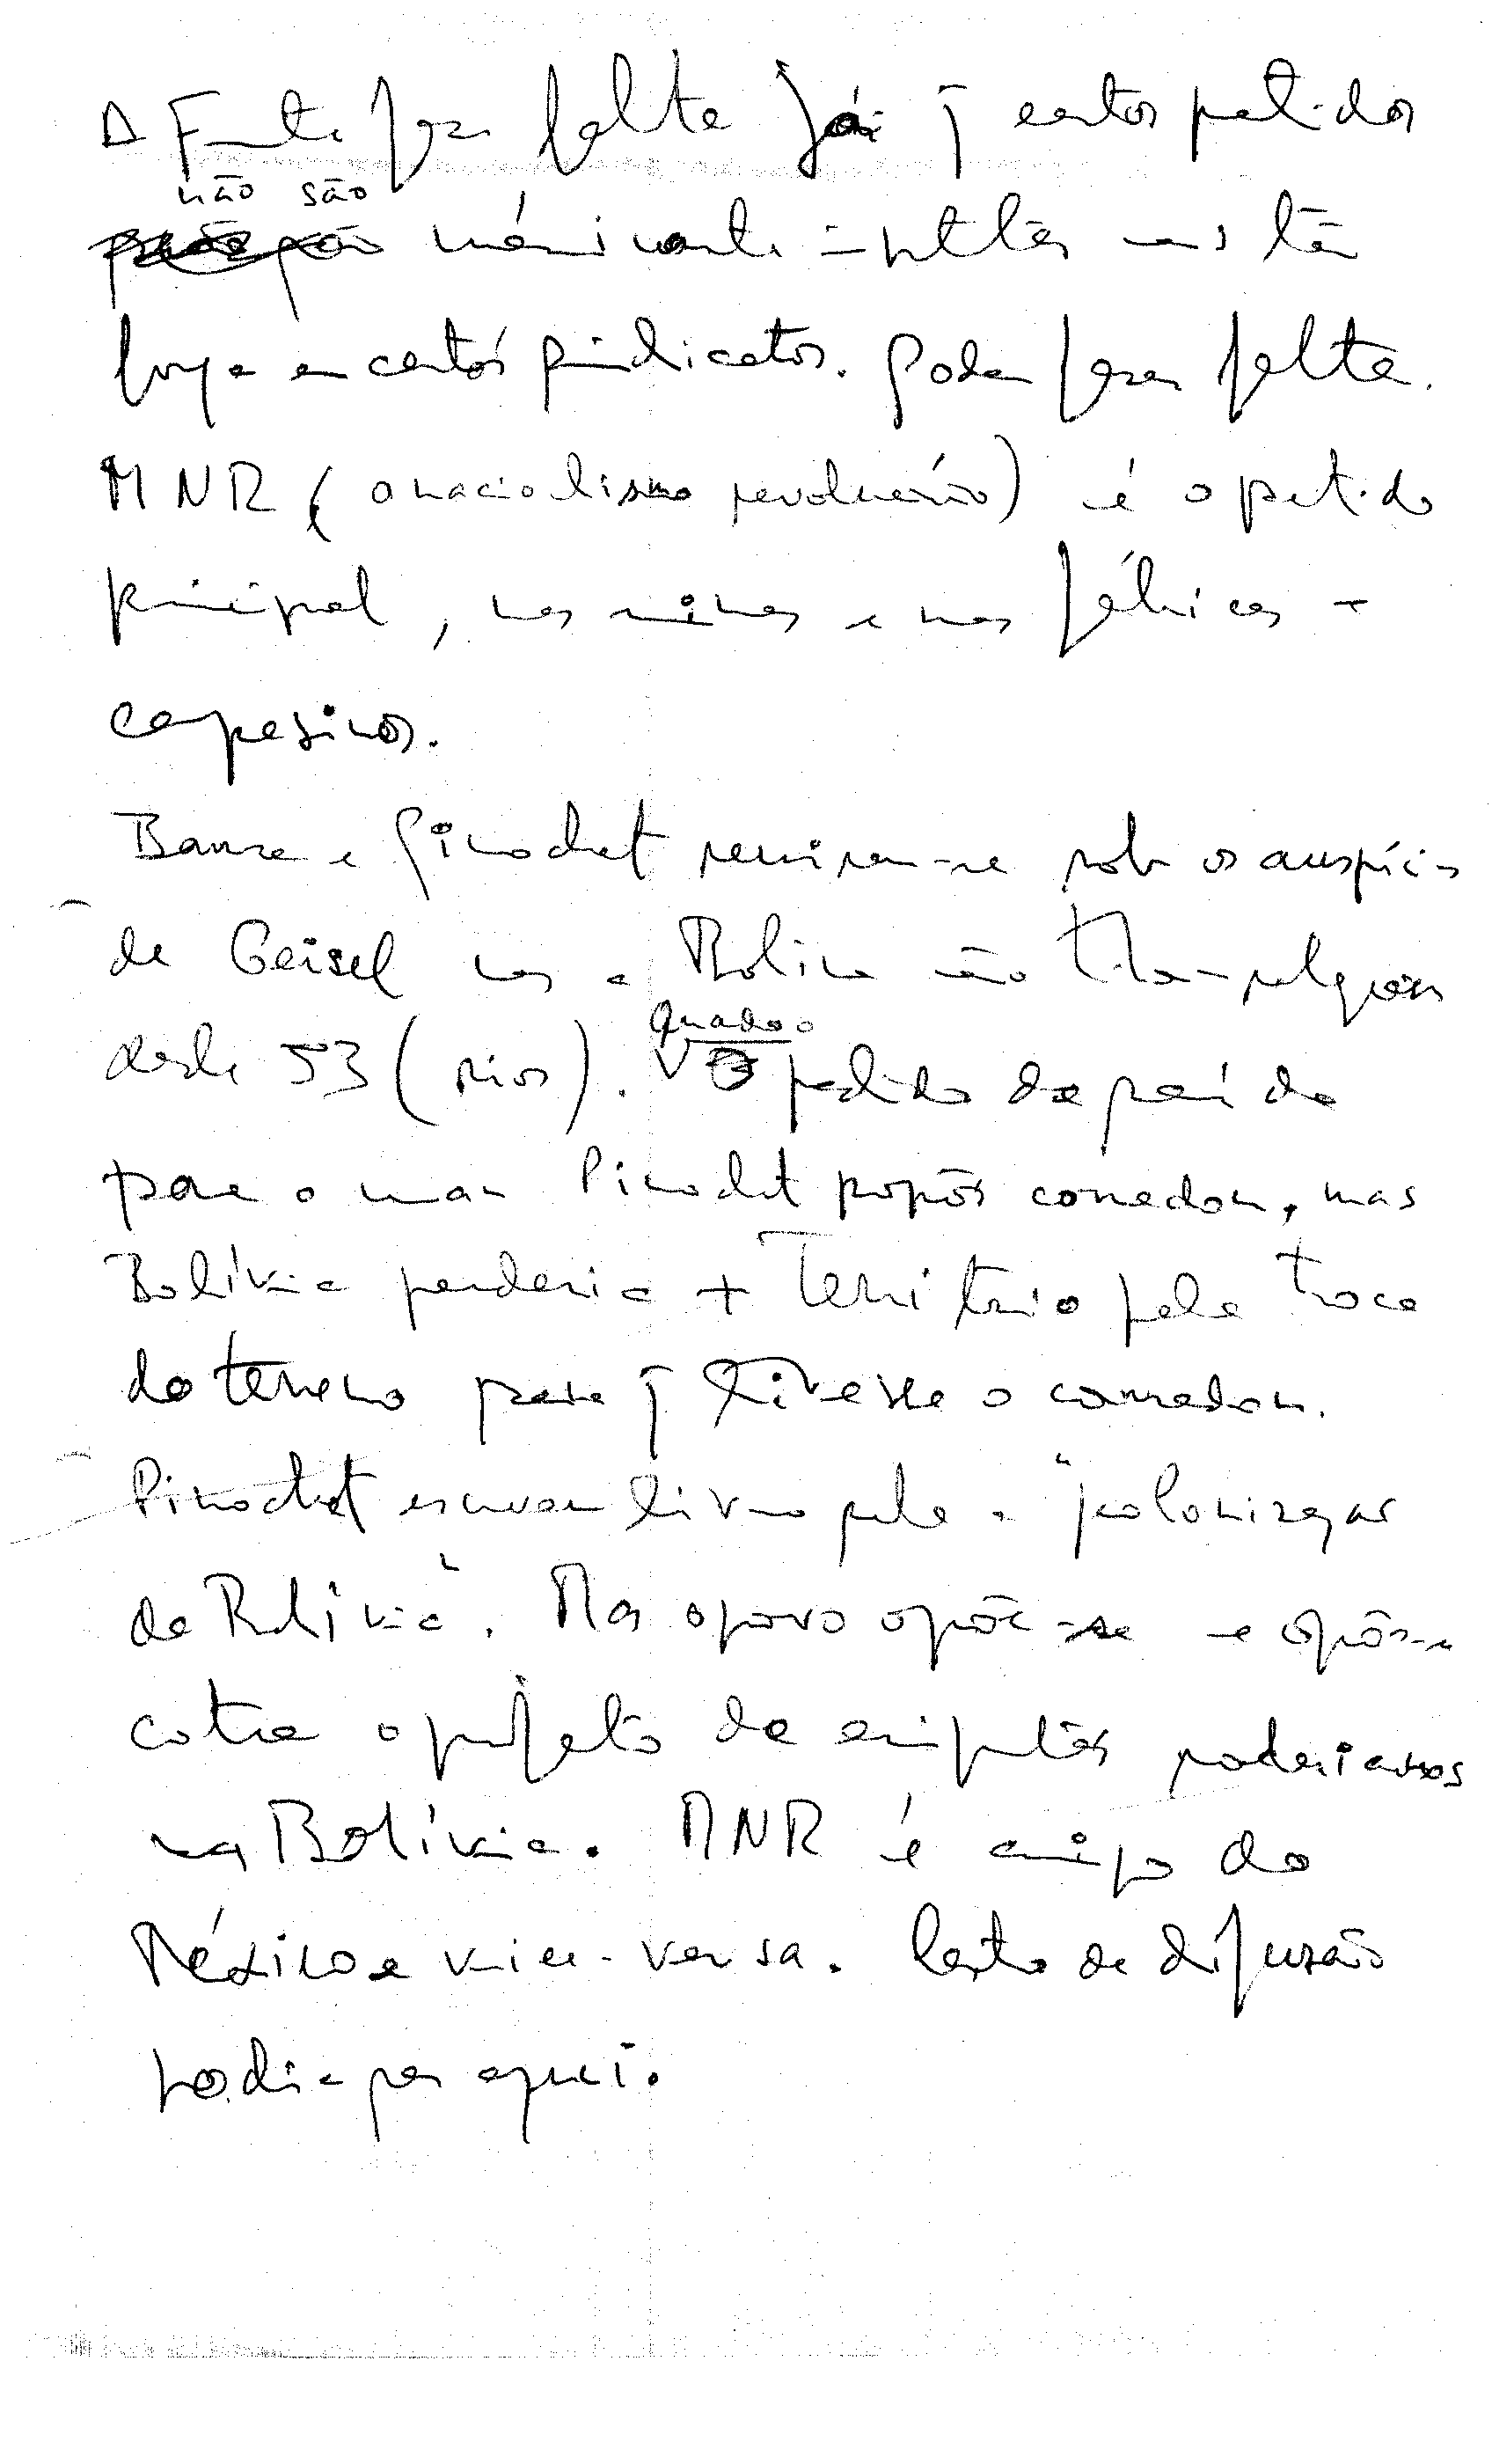 A Frente faz falta já q certos partidos
não são
numéricamente imptes mas têm
força em certos sindicatos. Podem fazer falta.
MNR (o nacionalismo revolucionário) é o partido
principal, nas minas e nas fábricas e
campesinos.
Banzer e Pinochet reuniram-se sob os auspícios
de Geisel mas a Bolívia não tinha relações
desde 53 (rios). Quando o
pedido da saída
para o mar Pinochet propôs corredor, mas
Bolívia perderia + território pela troca
do terreno para q tivesse o corredor.
Pinochet escreveu livro pela a "polonizaçao
da Bolívia". Mas o povo opõe-se e opôs-se
contra o projeto da
na Bolívia. MNR é amigo do
México e vice-versa. Centro de difusão
podia ser aqui.